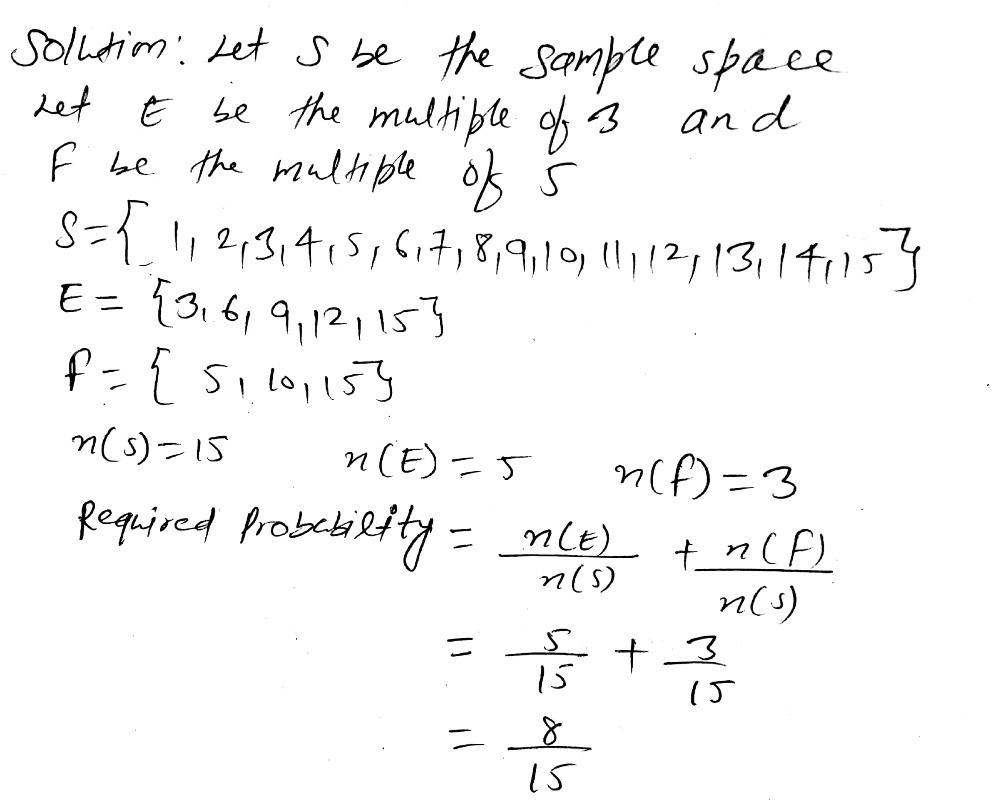 Solution: Let S be the sample space
Let E be the multiple of 3 and
F be the multiple of 5
S={ 1, 2, 3, 4, 5, 6, 7, 8, 9, 10, 11, 12, 13, 14, 15}
E = {3, 6, 9, 12, 15}
f = { 5, 10, 15}
n(s) = 15 n(E) = 5 n(f) = 3
Required Probability = n(E)/n(S) + n(f)/n(s)
= 5/15 + 3/15
= 8/15